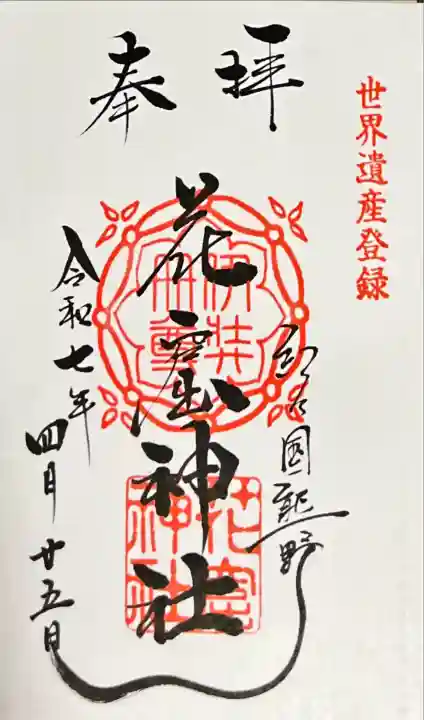 世界遺産登録
奉拝
紀伊國熊野
花窟神社
伊弉冊尊
花窟神社
令和七年四月廿五日